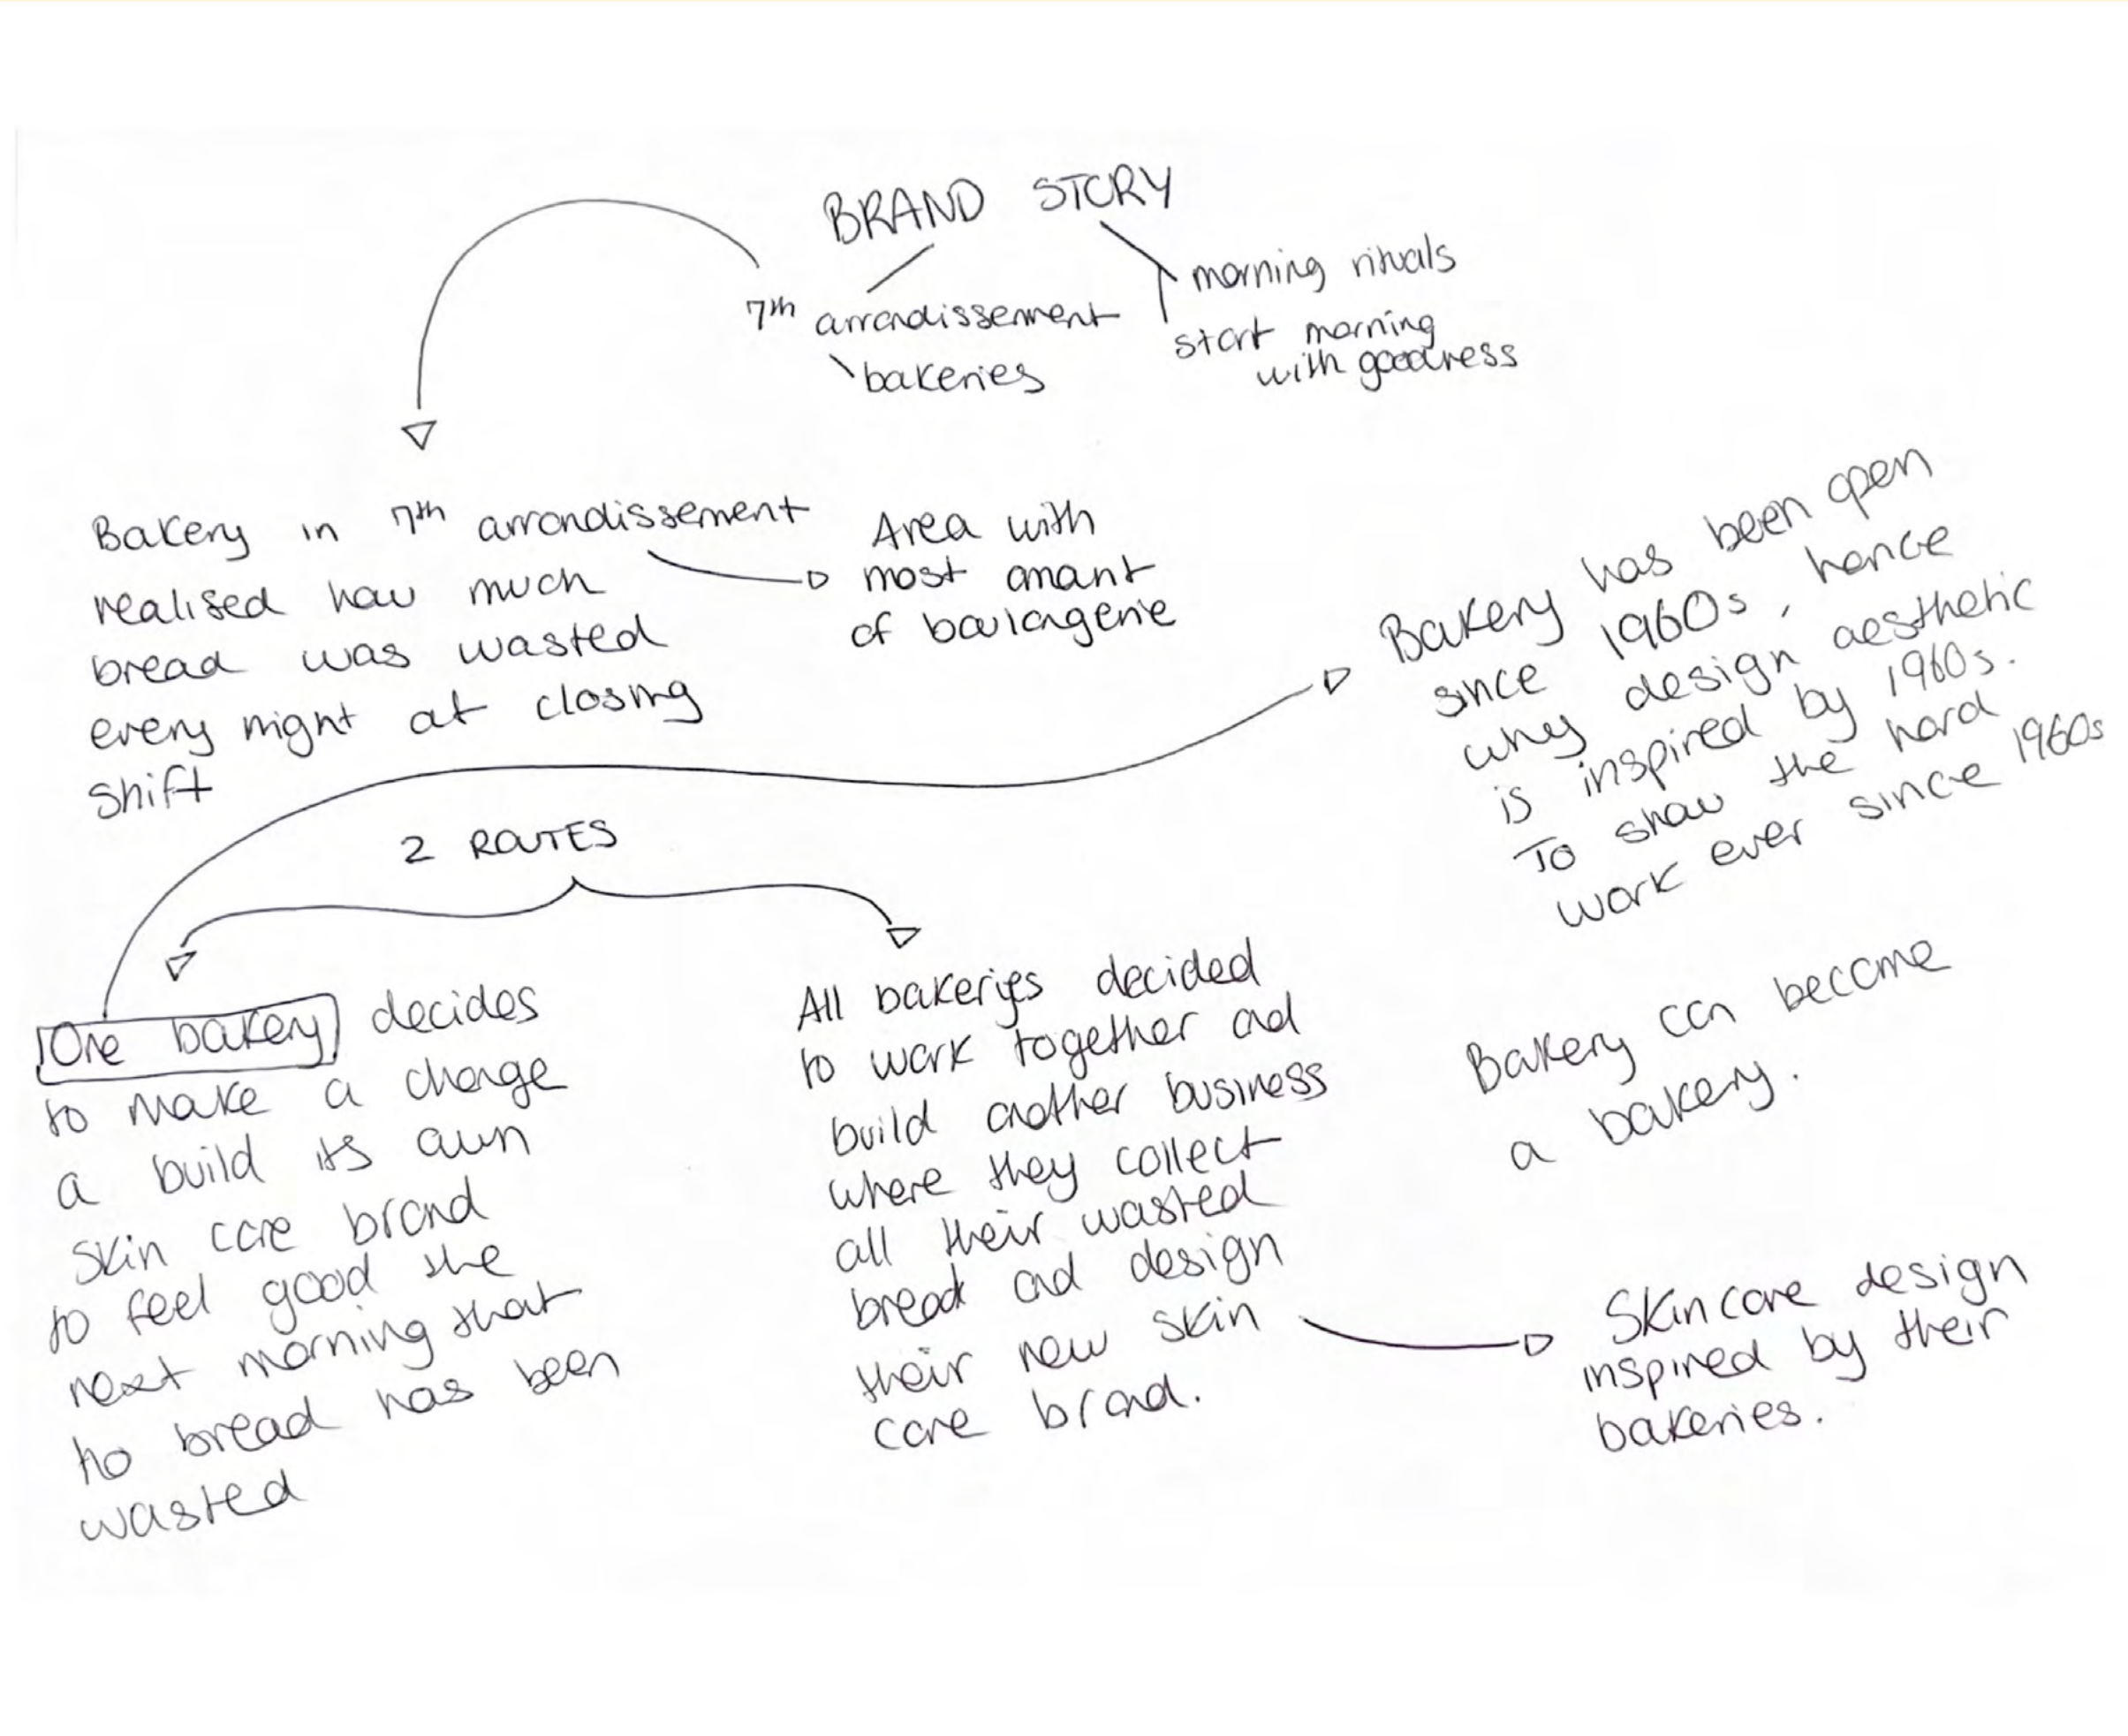 BRAND STORY
7th arrondissement
bakeries
morning rituals
start morning
with goodness
Bakery in 7th arrondissement
realised how much
bread was wasted
every night at closing
shift
Area with
most amant
of boulangerie
Bakery has been open
since 1960s, hence
why design aesthetic
is inspired by 1960s.
To show the hard
work ever since 1960s
2 ROUTES
One bakery decides
to make a change
a build its own
skin care brand
to feel good the
next morning that
no bread has been
wasted
All bakeries decided
to work together and
build another business
where they collect
all their wasted
bread and design
their new skin
care brand.
Bakery can become
a bakery.
Skincare design
inspired by their
bakeries.